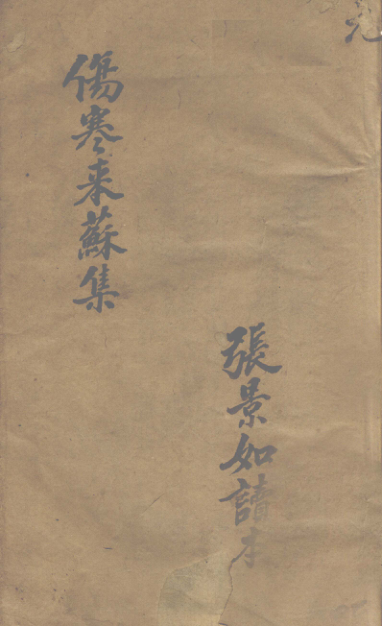 元
傷寒来蘇集
張景如讀本